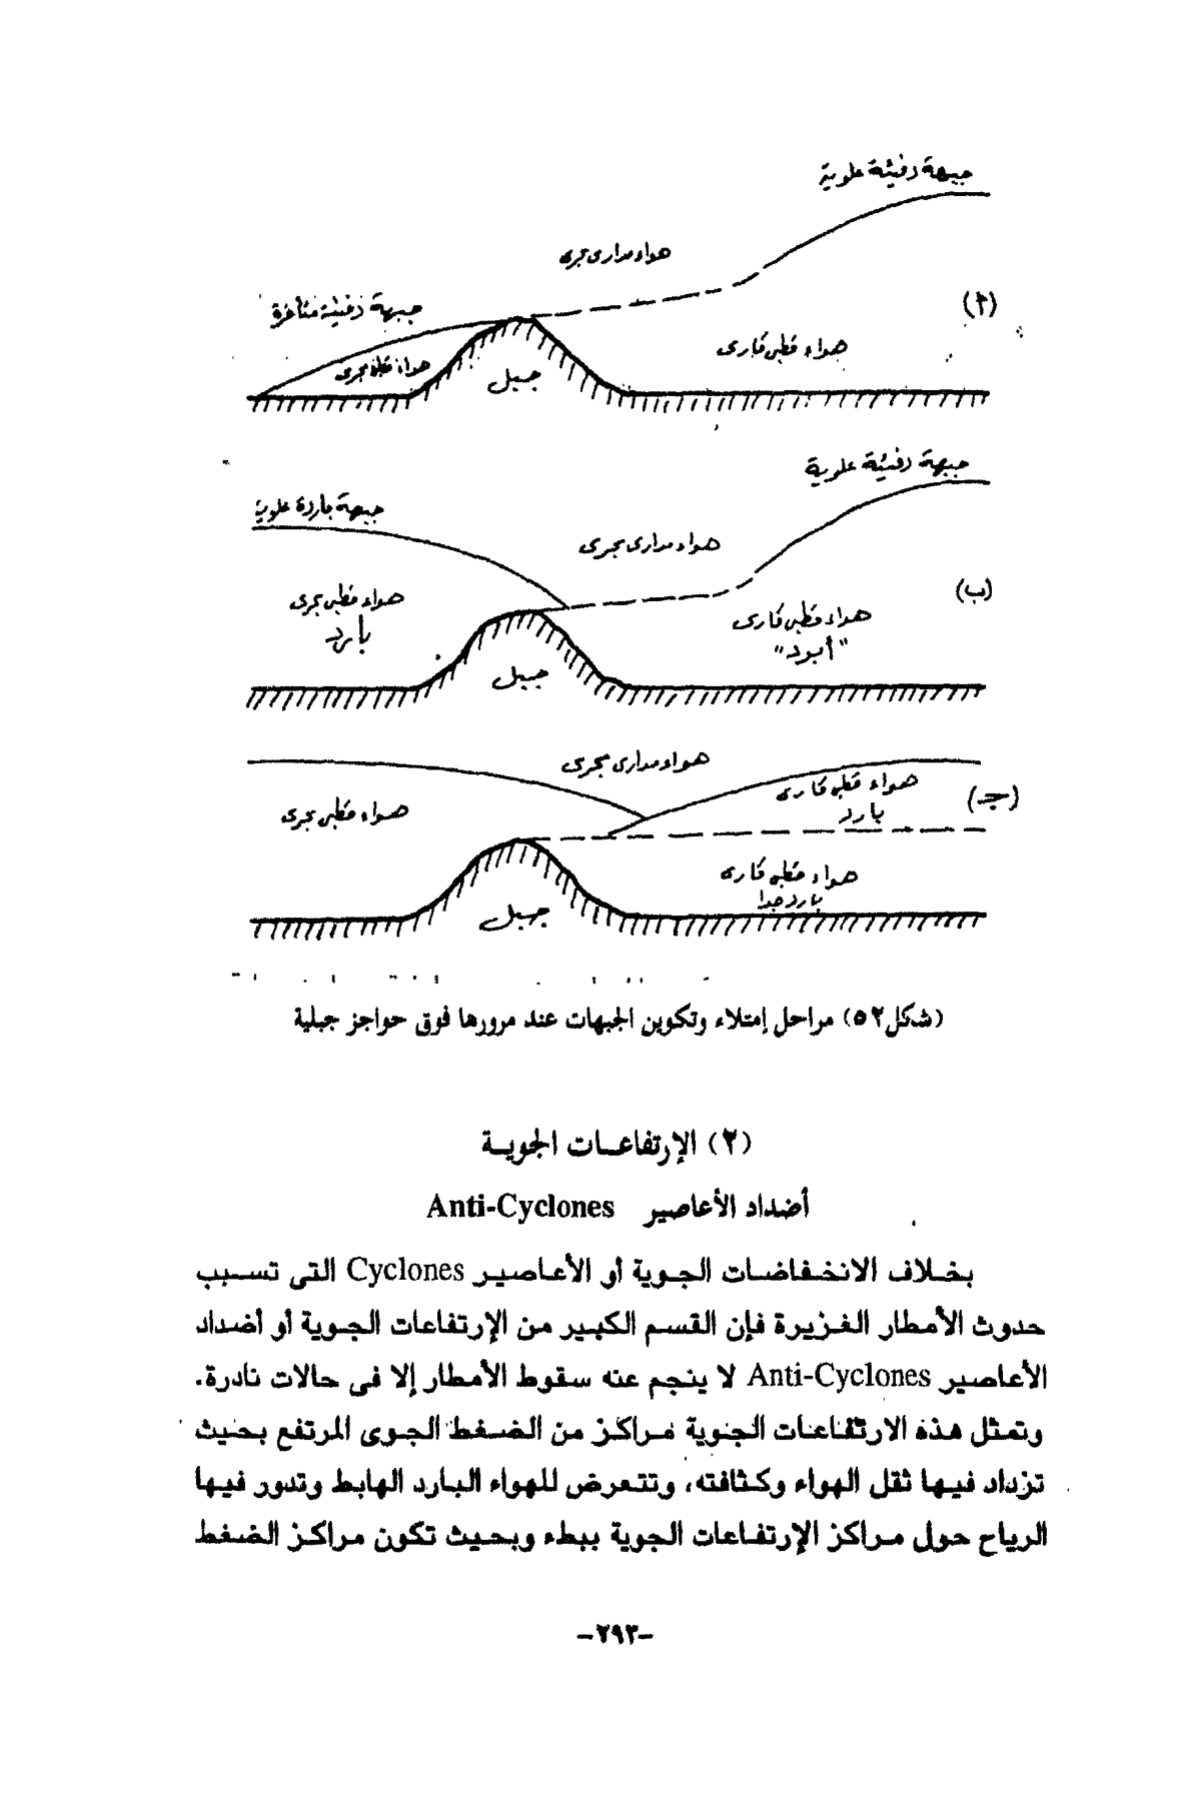 جبهة دفيئة علوية
هواء مدارى بحرى
جبهة دفيئة متأخرة
(أ)
هواء قطبى قارى
هواء قطبى بحرى
جبل
جبهة دفيئة علوية
جبهة باردة علوية
هواء مدارى بحرى
(ب)
هواء قطبى بحرى
بارد
هواء قطبى قارى
"أبرد"
جبل
هواء مدارى بحرى
هواء قطبى قارى
بارد
(جـ)
هواء قطبى بحرى
هواء قطبى قارى
بارد جدا
جبل
(شكل٥٢) مراحل إمتلاء وتكوين الجبهات عند مرورها فوق حواجز جبلية
(٢) الإرتفاعات الجوية
أضداد الأعاصير Anti-Cyclones
بخلاف الانخفاضات الجوية أو الأعاصير Cyclones التى تسبب
حدوث الأمطار الغزيرة فإن القسم الكبير من الإرتفاعات الجوية أو أضداد
الأعاصير Anti-Cyclones لا ينجم عنه سقوط الأمطار إلا فى حالات نادرة.
وتمثل هذه الارتفاعات الجوية مراكز من الضغط الجوى المرتفع بحيث
تزداد فيها ثقل الهواء وكثافته، وتتعرض للهواء البارد الهابط وتدور فيها
الرياح حول مراكز الإرتفاعات الجوية ببطء وبحيث تكون مراكز الضغط
-٢٩٣-